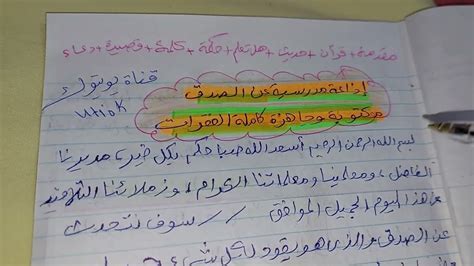 مقدمة + قرآن + حديث + هل تعلم + حكمة + كلمة + قصيدة + دعاء
قناة يوتيوب
إذاعة مدرسية عن الصدق
مكتوبة وجاهزة كاملة الفقرات
بسم الله الرحمن الرحيم أسعد الله صباحكم بكل خير، مديرنا
الفاضل، ومعلمينا ومعلماتنا الكرام، وزملائنا التلاميذ
من هذا اليوم الجميل الموافق // سوف نتحدث
عن الصدق والذي هو يقود لكل شيء